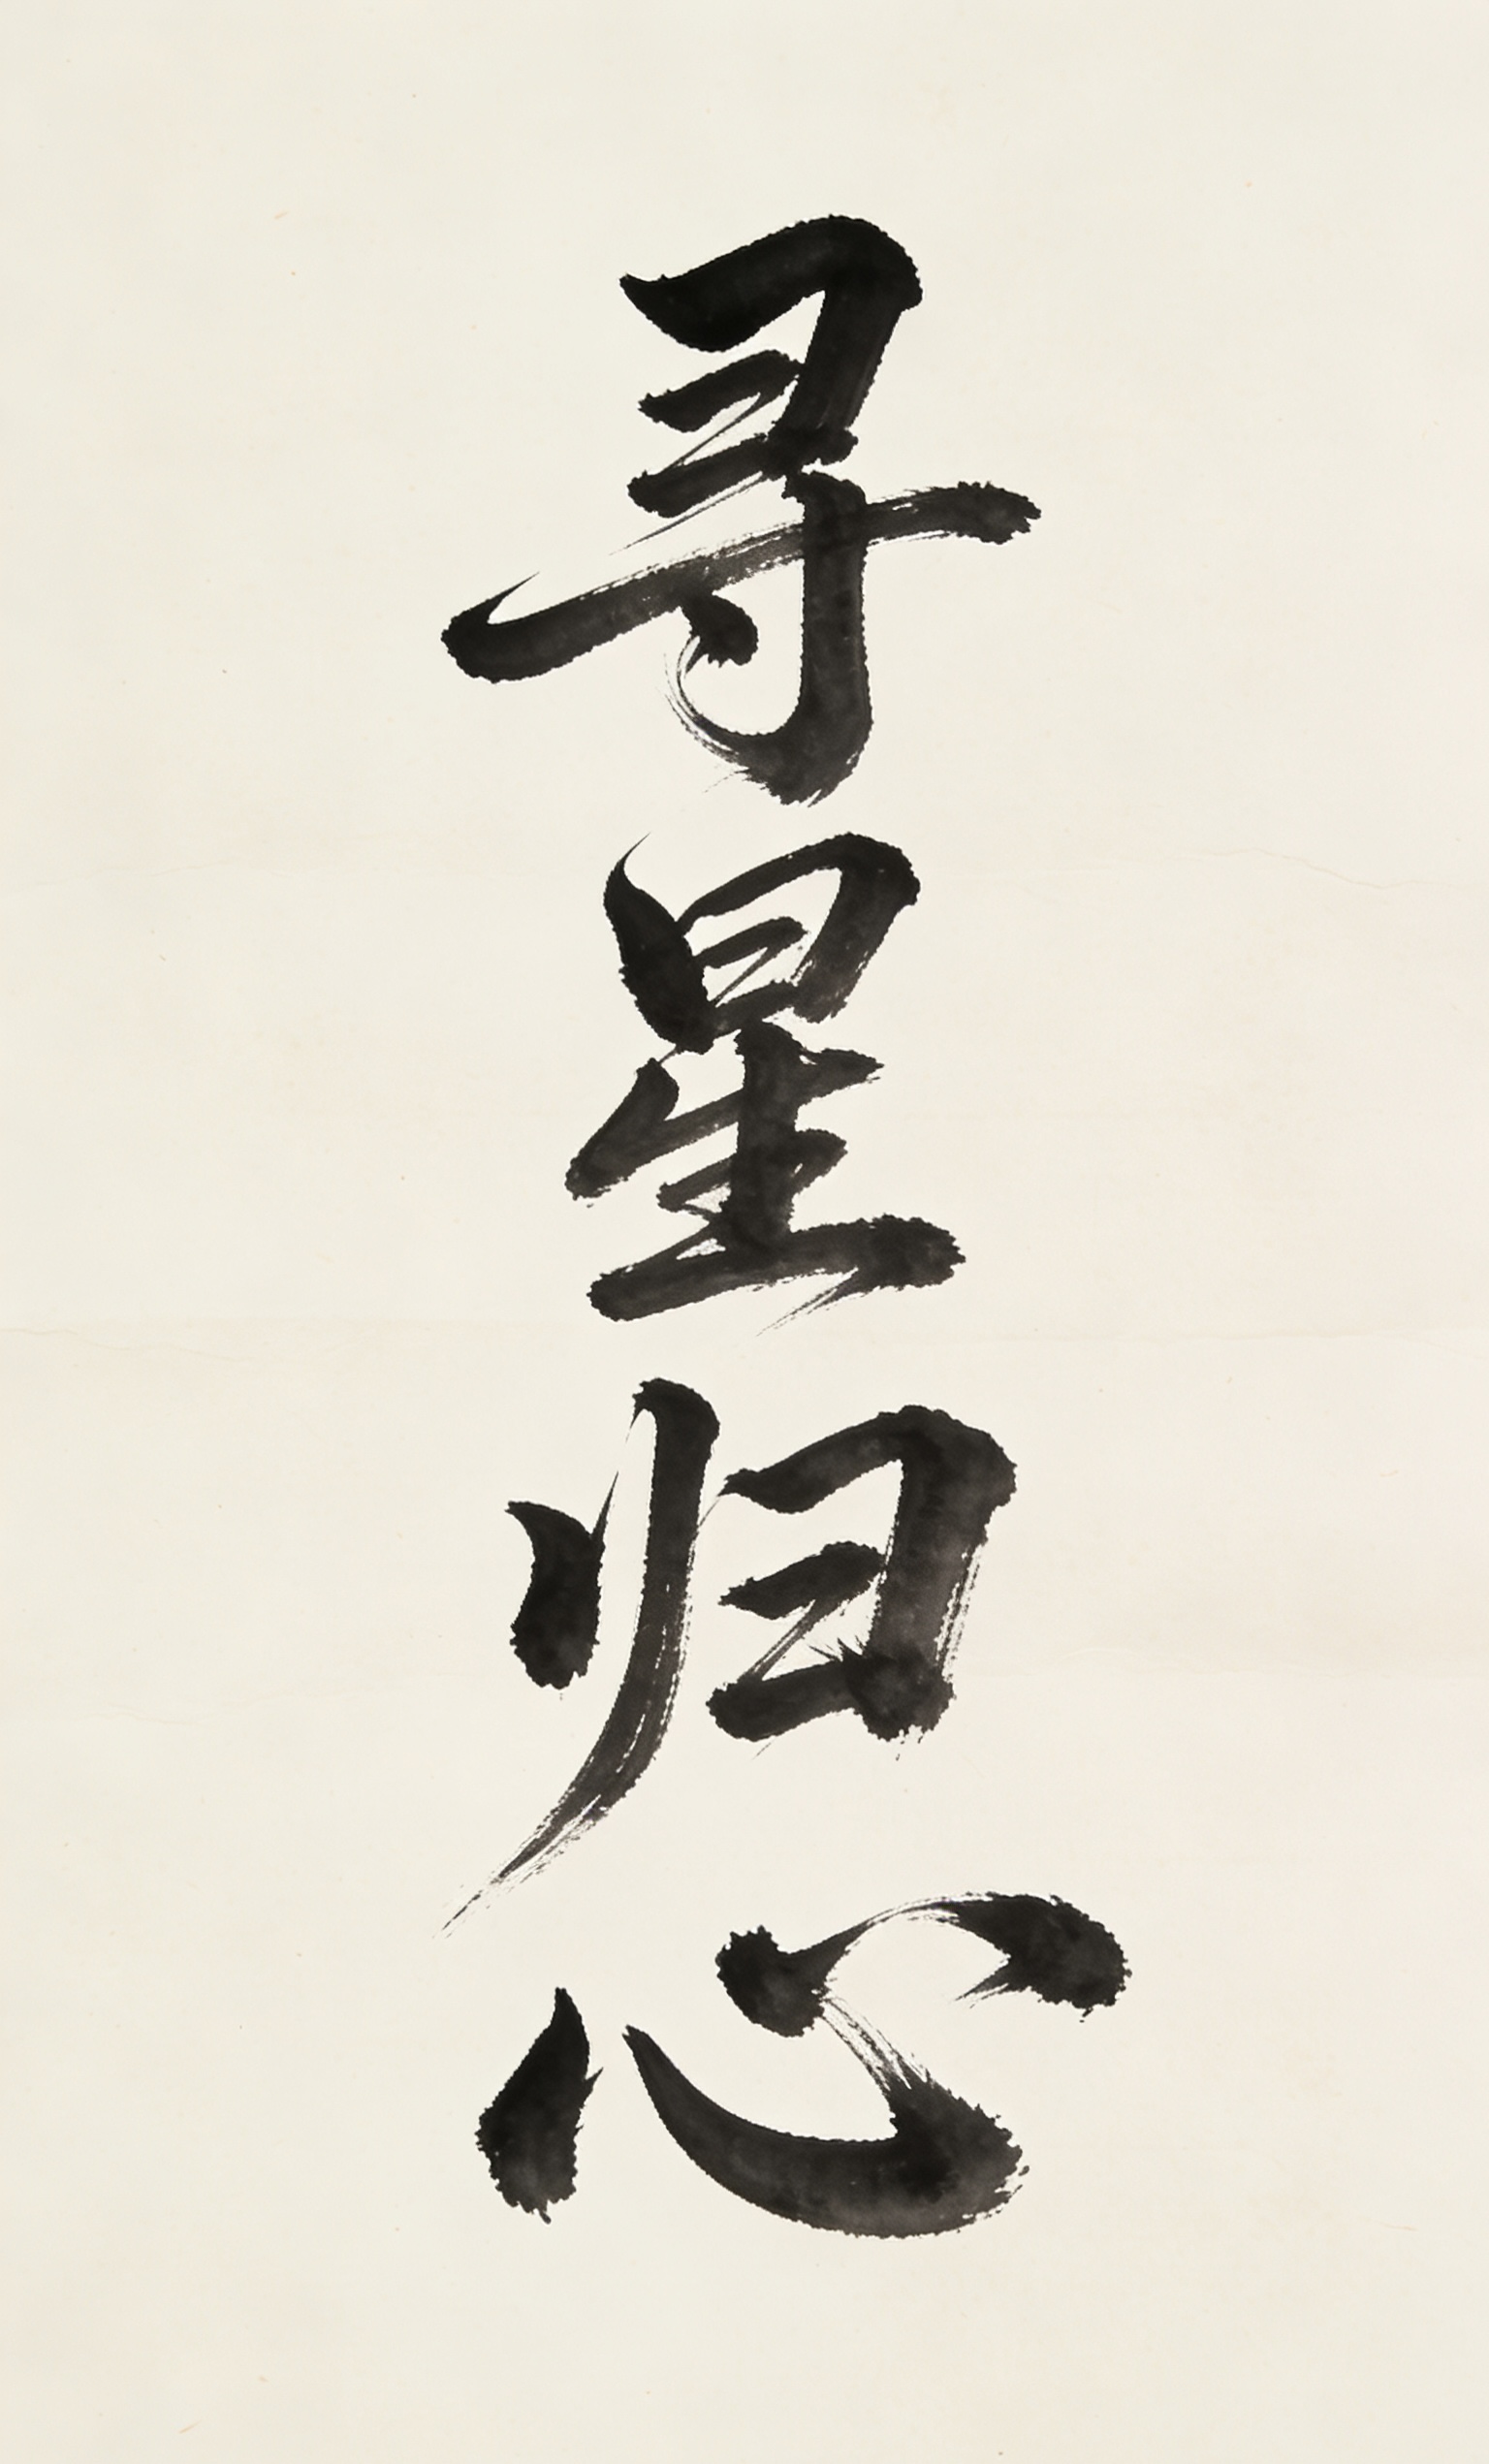 寻星归心